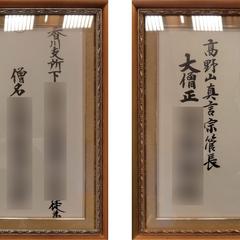 高野山真言宗管長
大僧正
香川支所下
僧名
徒弟